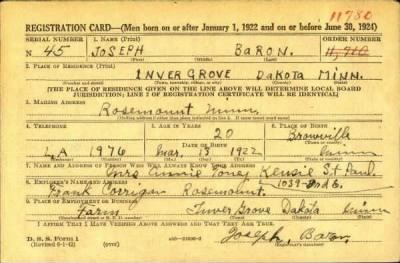 11780
REGISTRATION CARD—(Men born on or after January 1, 1922 and on or before June 30, 1924)
SERIAL NUMBER 1. NAME (Print) ORDER NUMBER
N 45 JOSEPH BARON. 11,710
(First) (Middle) (Last)
2. PLACE OF RESIDENCE (Print)
INVER GROVE DAKOTA MINN.
(Number and street) (Town, township, village, or city) (County) (State)
(THE PLACE OF RESIDENCE GIVEN ON THE LINE ABOVE WILL DETERMINE LOCAL BOARD
JURISDICTION; LINE 2 OF REGISTRATION CERTIFICATE WILL BE IDENTICAL)
3. MAILING ADDRESS
Rosemount Minn.
(Mailing address if other than place indicated on line 2. If same insert word same)
4. TELEPHONE 5. AGE IN YEARS 6. PLACE OF BIRTH
20
DATE OF BIRTH
LA 1976 Mar. 15 1922 Minn
7. NAME AND ADDRESS OF PERSON WHO WILL ALWAYS KNOW YOUR ADDRESS
Mrs Annie St Paul.
8. EMPLOYER'S NAME AND ADDRESS 1039-
Frank Corrigan Rosemount.
9. PLACE OF EMPLOYMENT OR BUSINESS
Farm Inver Grove Dakota Minn
I AFFIRM THAT I HAVE VERIFIED ABOVE ANSWERS AND THAT THEY ARE TRUE.
D. S. S. Form 1
(Revised 6-1-42) (over) Joseph Baron
(Registrant's signature)